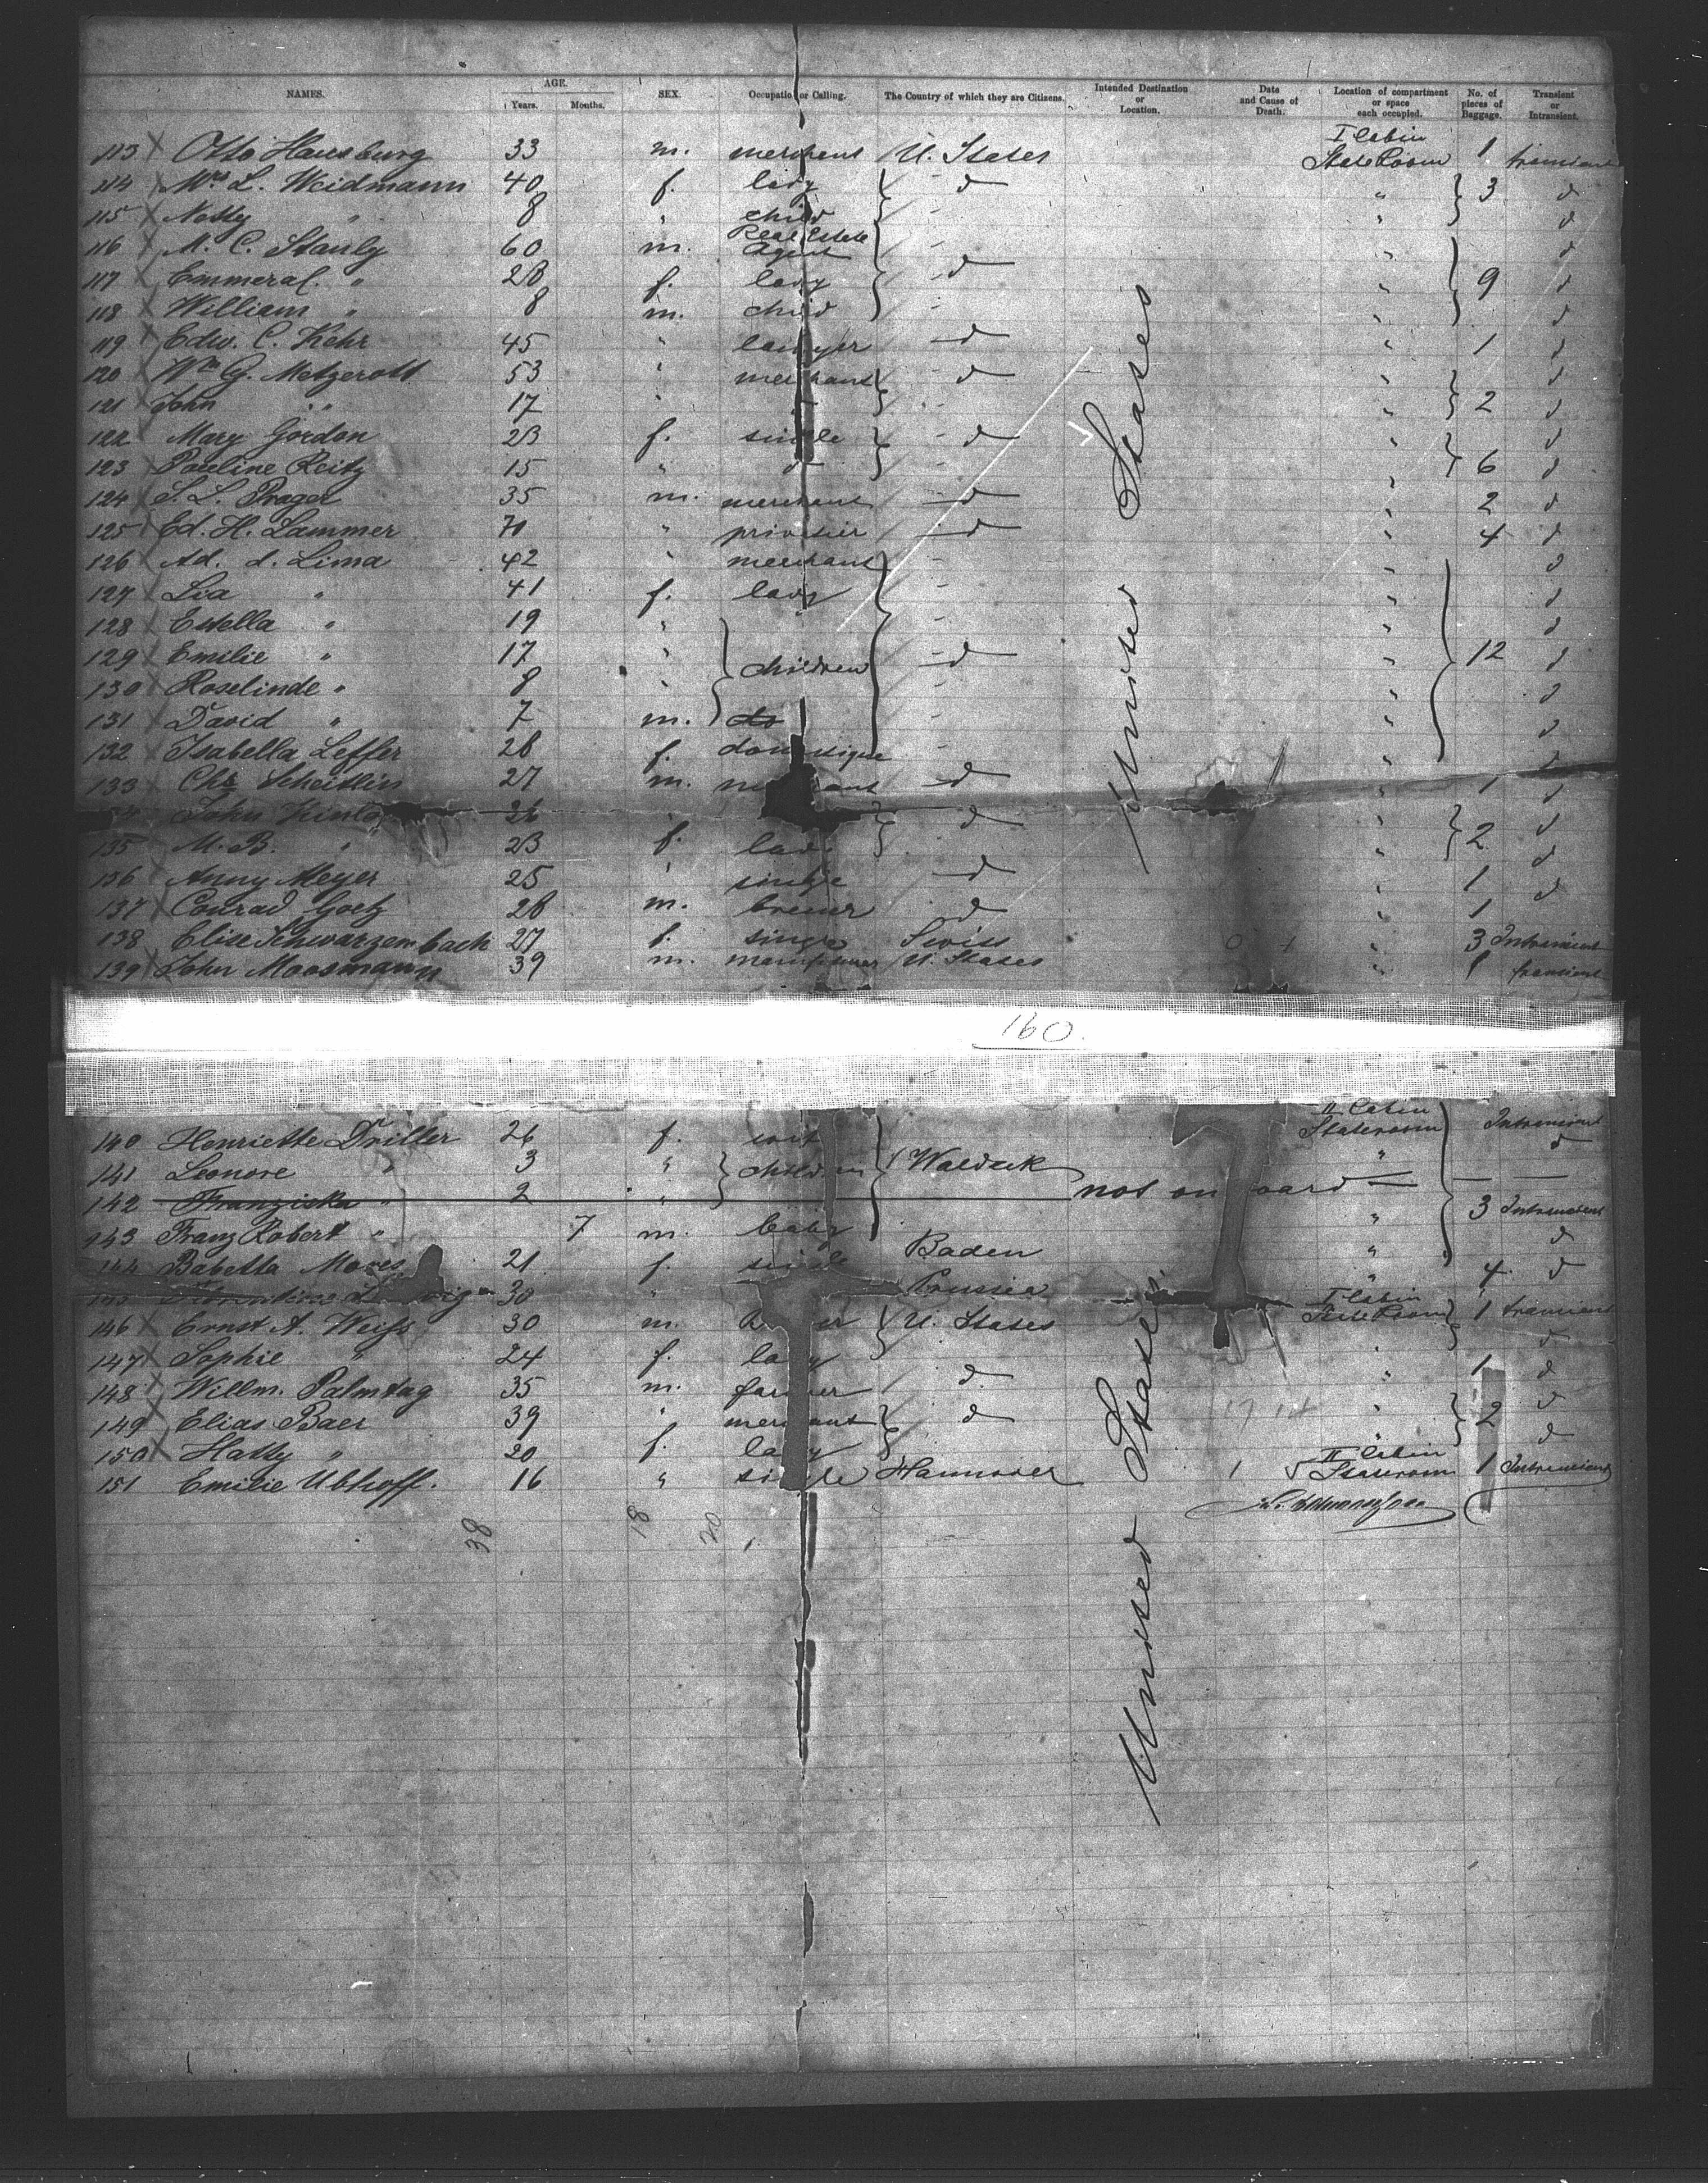 NAMES. AGE. Years. Months. SEX. Occupation or Calling. The Country of which they are Citizens. Intended Destination or Location. Date and Cause of Death. Location of compartment or space each occupied. No. of pieces of Baggage. Transient or Intransient.
113 X Otto Hausburg 33 m. merchant U. States I Cabin State Room 1 transient
114 X Mrs L. Weidmann 40 f. lady d " 3 d
115 X Netty " 8 " child - " d
116 X M. C. Stanly 60 m. Real Estate Agent - " d
117 X Emmeral. " 28 f. lady d " 9 d
118 X William " 8 m. child - " d
119 X Edw. C. Kehr 45 " lawyer d " 1 d
120 X Wm G. Metzerott 53 " merchant d " d
121 X John " 17 " - " 2 d
122 Mary Gordon 23 f. single d " d
123 X Pauline Reitz 15 " d - " 6 d
124 X S. L. Prager 35 m. merchant d " 2 d
125 X Ed. H. Lammer 70 " privatier d " 4 d
126 X Ad. d. Lima 42 " merchant - " d
127 X Lia " 41 f. lady - " d
128 X Estella " 19 " - " d
129 X Emilie " 17 " children d " 12 d
130 X Roselinde " 8 " - " d
131 X David " 7 m. do - " d
132 X Isabella Leffer 28 f. domestique - " d
133 X Chs Scheitlin 27 m. merchant d " 1 d
John 26 " d " d
135 M. B. " 23 f. lady " 2 d
136 X Anny Meyer 25 " single d " 1 d
137 X Conrad Goetz 28 m. brewer d " 1 d
138 Elise Schwarzembach 27 f. single Swiss " 3 Intransient
139 X John Moosmann 39 m. U. States " 1 transient
United States
160.
140 Henriette Driller 26 f. II Cabin Stateroom Intransient
141 Leonore " 3 " children Waldeck " d
142 Franziska " 2 " not on board
143 Franz Robert " 7 m. baby " 3 Intransient
144 Babetta Moves 21 f. single Baden " d
145 30 " Prussia " 4 d
146 X Ernst A. Weifs 30 m. U. States I Cabin State Room 1 transient
147 X Sophie " 24 f. lady d
148 X Willm. Palmtag 35 m. farmer d " 1 d
149 X Elias Baer 39 " merchant d " 2 d
150 X Hatty " 20 f. lady " d
151 Emilie Ubhoff. 16 " single Hannover 1 II Cabin Stateroom 1 Intransient
United States.
38 18 20